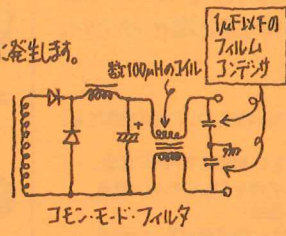 に発生します。
1μF以下の
フィルム
コンデンサ
数100μHのコイル
+
コモン・モード・フィルタ